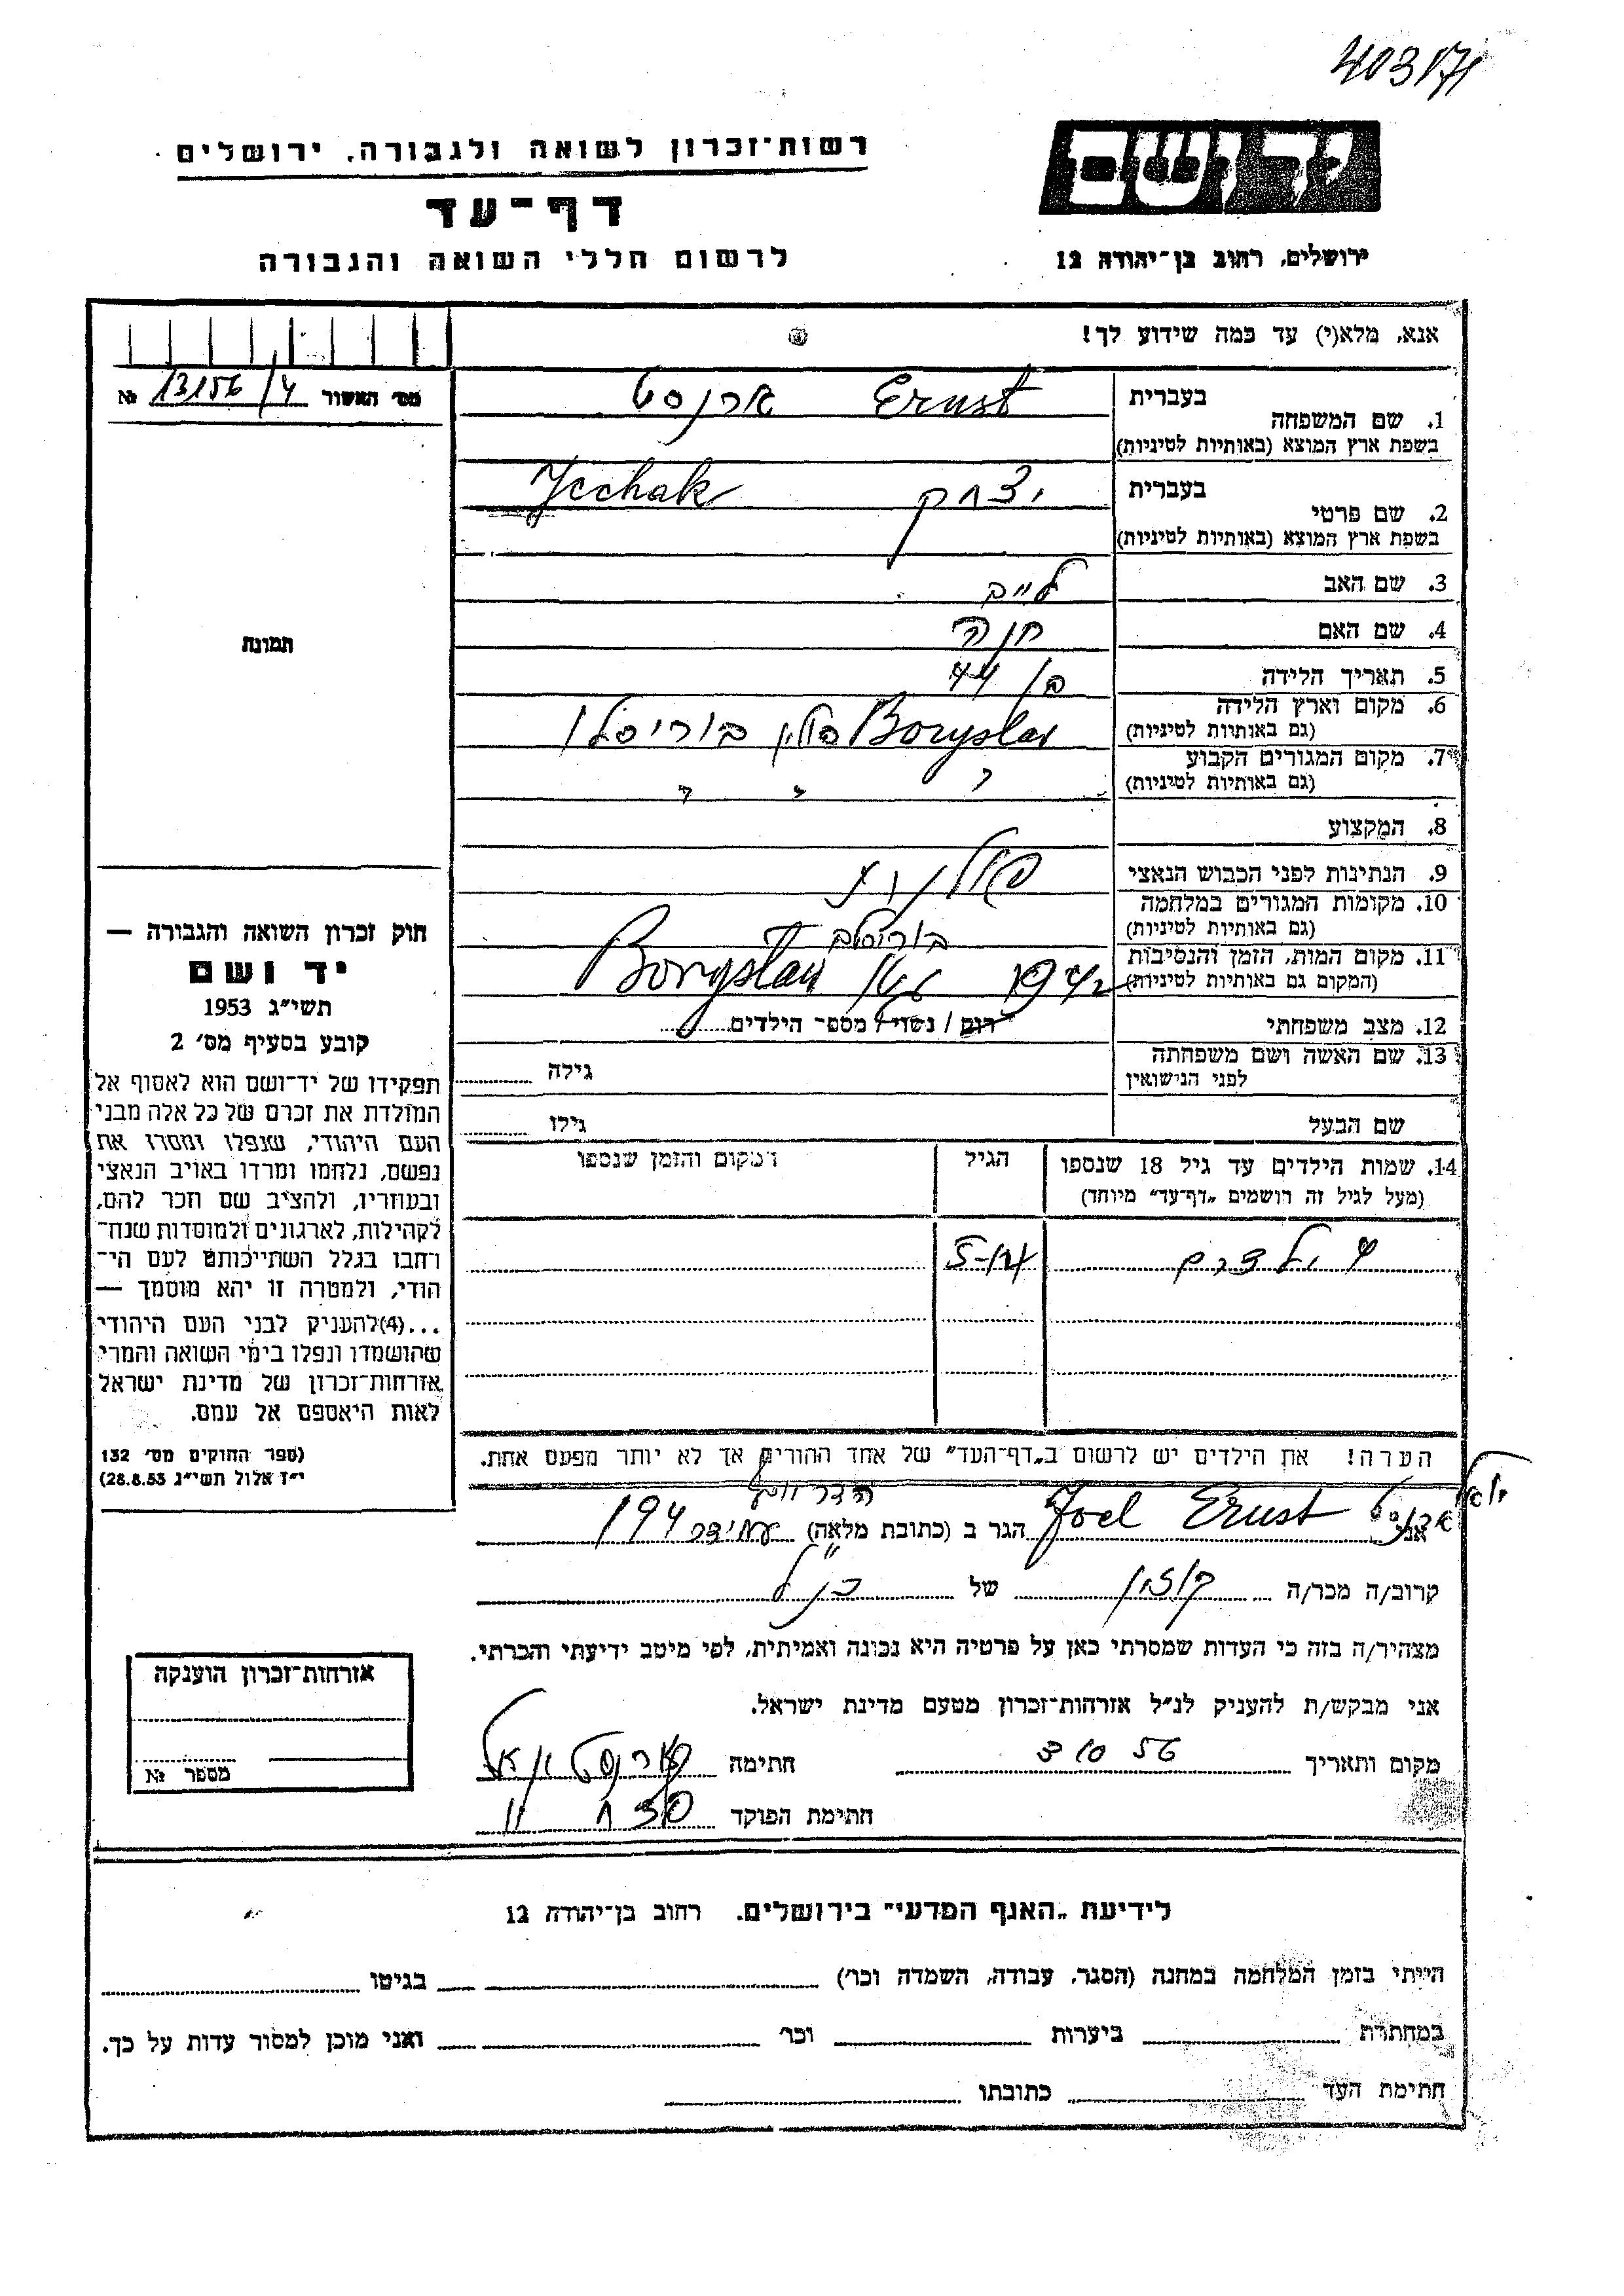 403171
רשות־זכרון לשואה ולגבורה, ירושלים
ידושם
דף־עד
לרשום חללי השואה והגבורה
ירושלים, רחוב בן־יהודה 12
אנא, מלא(י) עד כמה שידוע לך!
מס׳ האשור 13156/4 №
1. שם המשפחה בעברית Ernst ארנסט
בשפת ארץ המוצא (באותיות לטיניות)
2. שם פרטי בעברית יצחק Jcchak
בשפת ארץ המוצא (באותיות לטיניות)
3. שם האב לייב
4. שם האם חנה
5. תאריך הלידה בן 44
6. מקום וארץ הלידה Boryslav פולין בוריסלו
(גם באותיות לטיניות)
7. מקום המגורים הקבוע " " "
(גם באותיות לטיניות)
8. המקצוע
9. הנתינות לפני הכבוש הנאצי
10. מקומות המגורים במלחמה
(גם באותיות לטיניות)
11. מקום המות, הזמן והנסיבות 1942 Boryslav
(המקום גם באותיות לטיניות)
12. מצב משפחתי רווק / נשוי / מספר הילדים
13. שם האשה ושם משפחתה גילה
לפני הנישואין
שם הבעל גילו
14. שמות הילדים עד גיל 18 שנספו הגיל המקום והזמן שנספו
(מעל לגיל זה רושמים „דף־עד״ מיוחד)
5-14
הערה! את הילדים יש לרשום ב„דף־העד״ של אחד ההורים אך לא יותר מפעם אחת.
תמונת
חוק זכרון השואה והגבורה —
יד ושם
תשי״ג 1953
קובע בסעיף מס׳ 2
תפקידו של יד־ושם הוא לאסוף אל
המולדת את זכרם של כל אלה מבני
העם היהודי, שנפלו ומסרו את
נפשם, נלחמו ומרדו באויב הנאצי
ובעוזריו, ולהציב שם וזכר להם,
לקהילות, לארגונים ולמוסדות שנח־
רבו בגלל השתייכותם לעם הי־
הודי, ולמטרה זו יהא מוסמך —
...(4)להעניק לבני העם היהודי
שהושמדו ונפלו בימי השואה והמרי
אזרחות־זכרון של מדינת ישראל
לאות היאספם אל עמם.
(ספר החוקים מס׳ 132
י״ז אלול תשי״ג 28.8.53)
אני ארנסט יואל Joel Ernst הגר ב (כתובת מלאה) עמידר 194
קרוב/ה מכר/ה של הנ״ל
מצהיר/ה בזה כי העדות שמסרתי כאן על פרטיה היא נכונה ואמיתית, לפי מיטב ידיעתי והכרתי.
אני מבקש/ת להעניק לנ״ל אזרחות־זכרון מטעם מדינת ישראל.
מקום ותאריך 3 10 56 חתימה ארנסט יואל
חתימת הפוקד
אזרחות־זכרון הוענקה
מספר №
לידיעת „האגף המדעי״ בירושלים. רחוב בן־יהודה 12
הייתי בזמן המלחמה במחנה (הסגר, עבודה, השמדה וכר׳) בגיטו
במחתרת ביערות וכר׳ ואני מוכן למסור עדות על כך.
חתימת העד כתובתו